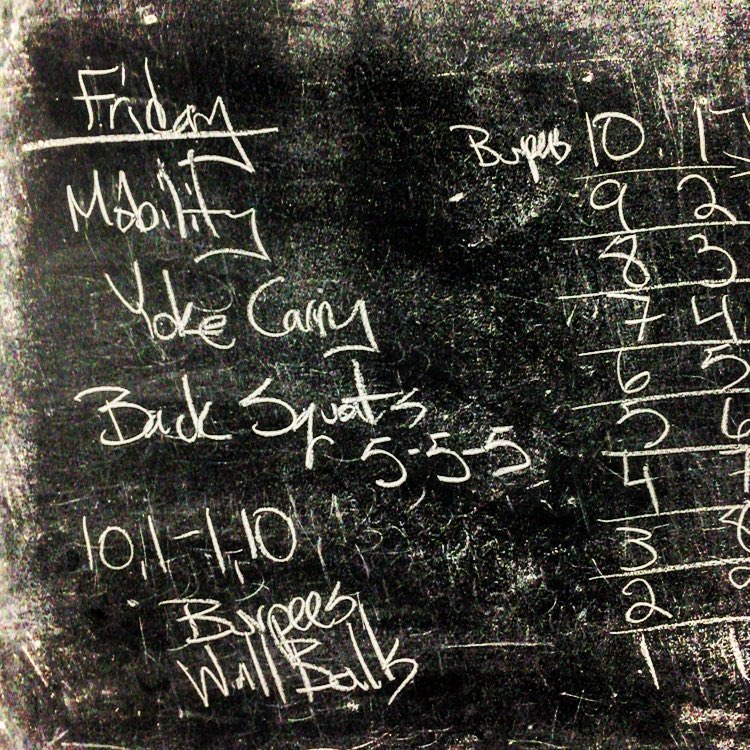 Friday
Mobility
Yoke Carry
Back Squats
5-5-5
10,1-1,10
Burpees
Wall Balls
Burpees 10 1
9 2
8 3
7 4
6 5
5 6
4 7
3 8
2
1 1